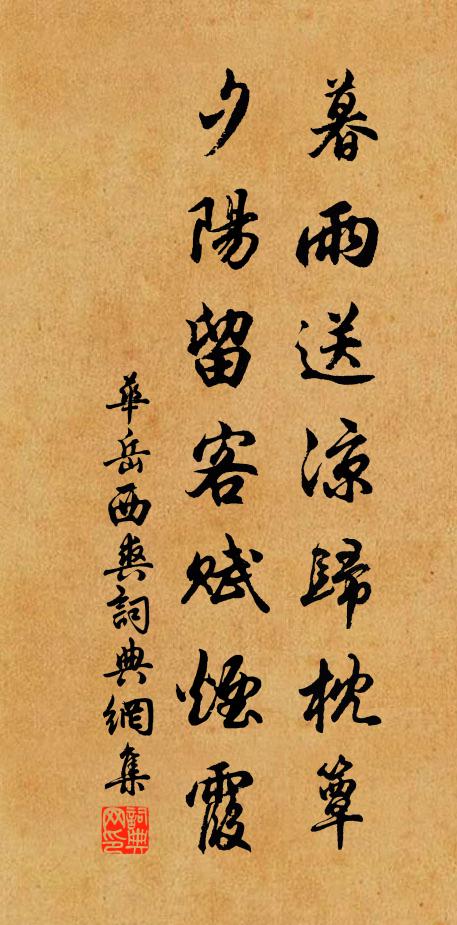 暮雨送涼歸枕簟
夕陽留客賦煙霞
華岳西爽詞典網集
詞典网印